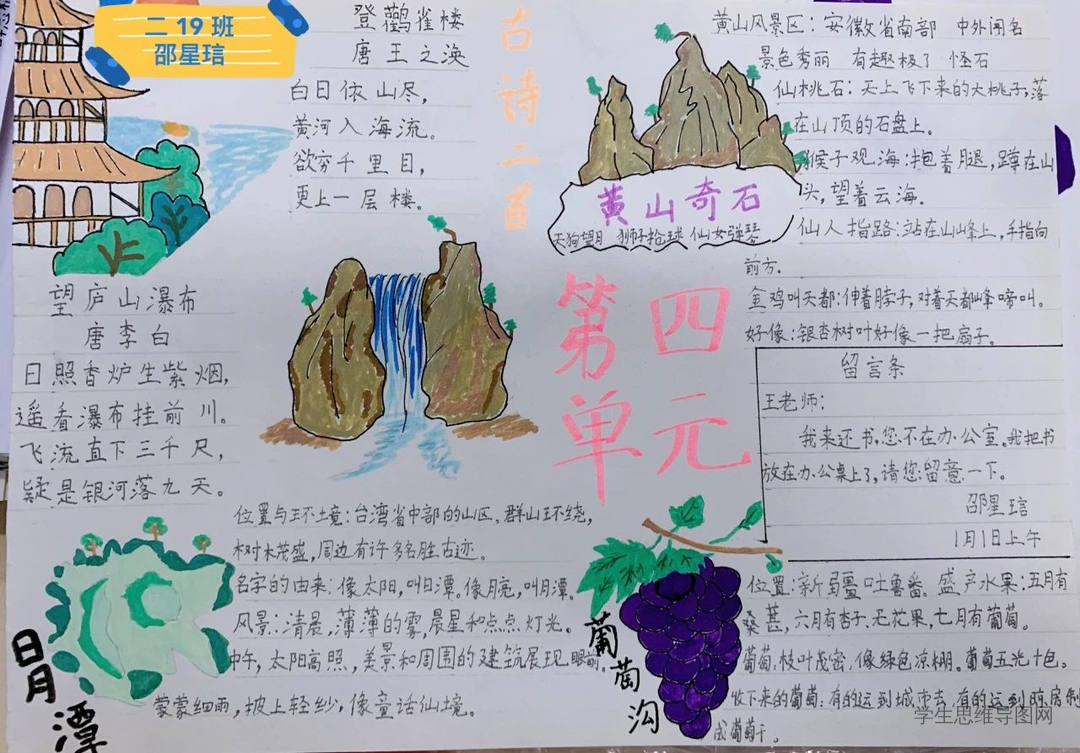 二 19 班
邵星琂
登鹳雀楼
唐 王之涣
白日依山尽，
黄河入海流。
欲穷千里目，
更上一层楼。
古诗二首
望庐山瀑布
唐 李白
日照香炉生紫烟，
遥看瀑布挂前川。
飞流直下三千尺，
疑是银河落九天。
第四
单元
黄山风景区：安徽省南部 中外闻名
景色秀丽 有趣极了 怪石
仙桃石：天上飞下来的大桃子，落
在山顶的石盘上。
猴子观海：抱着腿，蹲在山
头，望着云海。
仙人指路：站在山峰上，手指向
前方.
金鸡叫天都：伸着脖子，对着天都峰啼叫。
好像：银杏树叶好像一把扇子。
黄山奇石
天狗望月 狮子抢球 仙女弹琴
留言条
王老师：
我来还书，您不在办公室。我把书
放在办公桌上了，请您留意一下。
邵星琂
1月1日上午
日月潭
位置与环境：台湾省中部的山区，群山环绕，
树木茂盛，周边有许多名胜古迹。
名字的由来：像太阳，叫日潭。像月亮，叫月潭。
风景：清晨，薄薄的雾，晨星和点点灯光。
中午，太阳高照，美景和周围的建筑展现眼前。
蒙蒙细雨，披上轻纱，像童话仙境。
葡萄沟
位置：新疆吐鲁番。盛产水果：五月有
葚，六月有杏子、无花果，七月有葡萄。
葡萄：枝叶茂密，像绿色凉棚。葡萄五光十色。
收下来的葡萄：有的运到城市去，有的运到晾房制
成葡萄干。
学生思维导图网